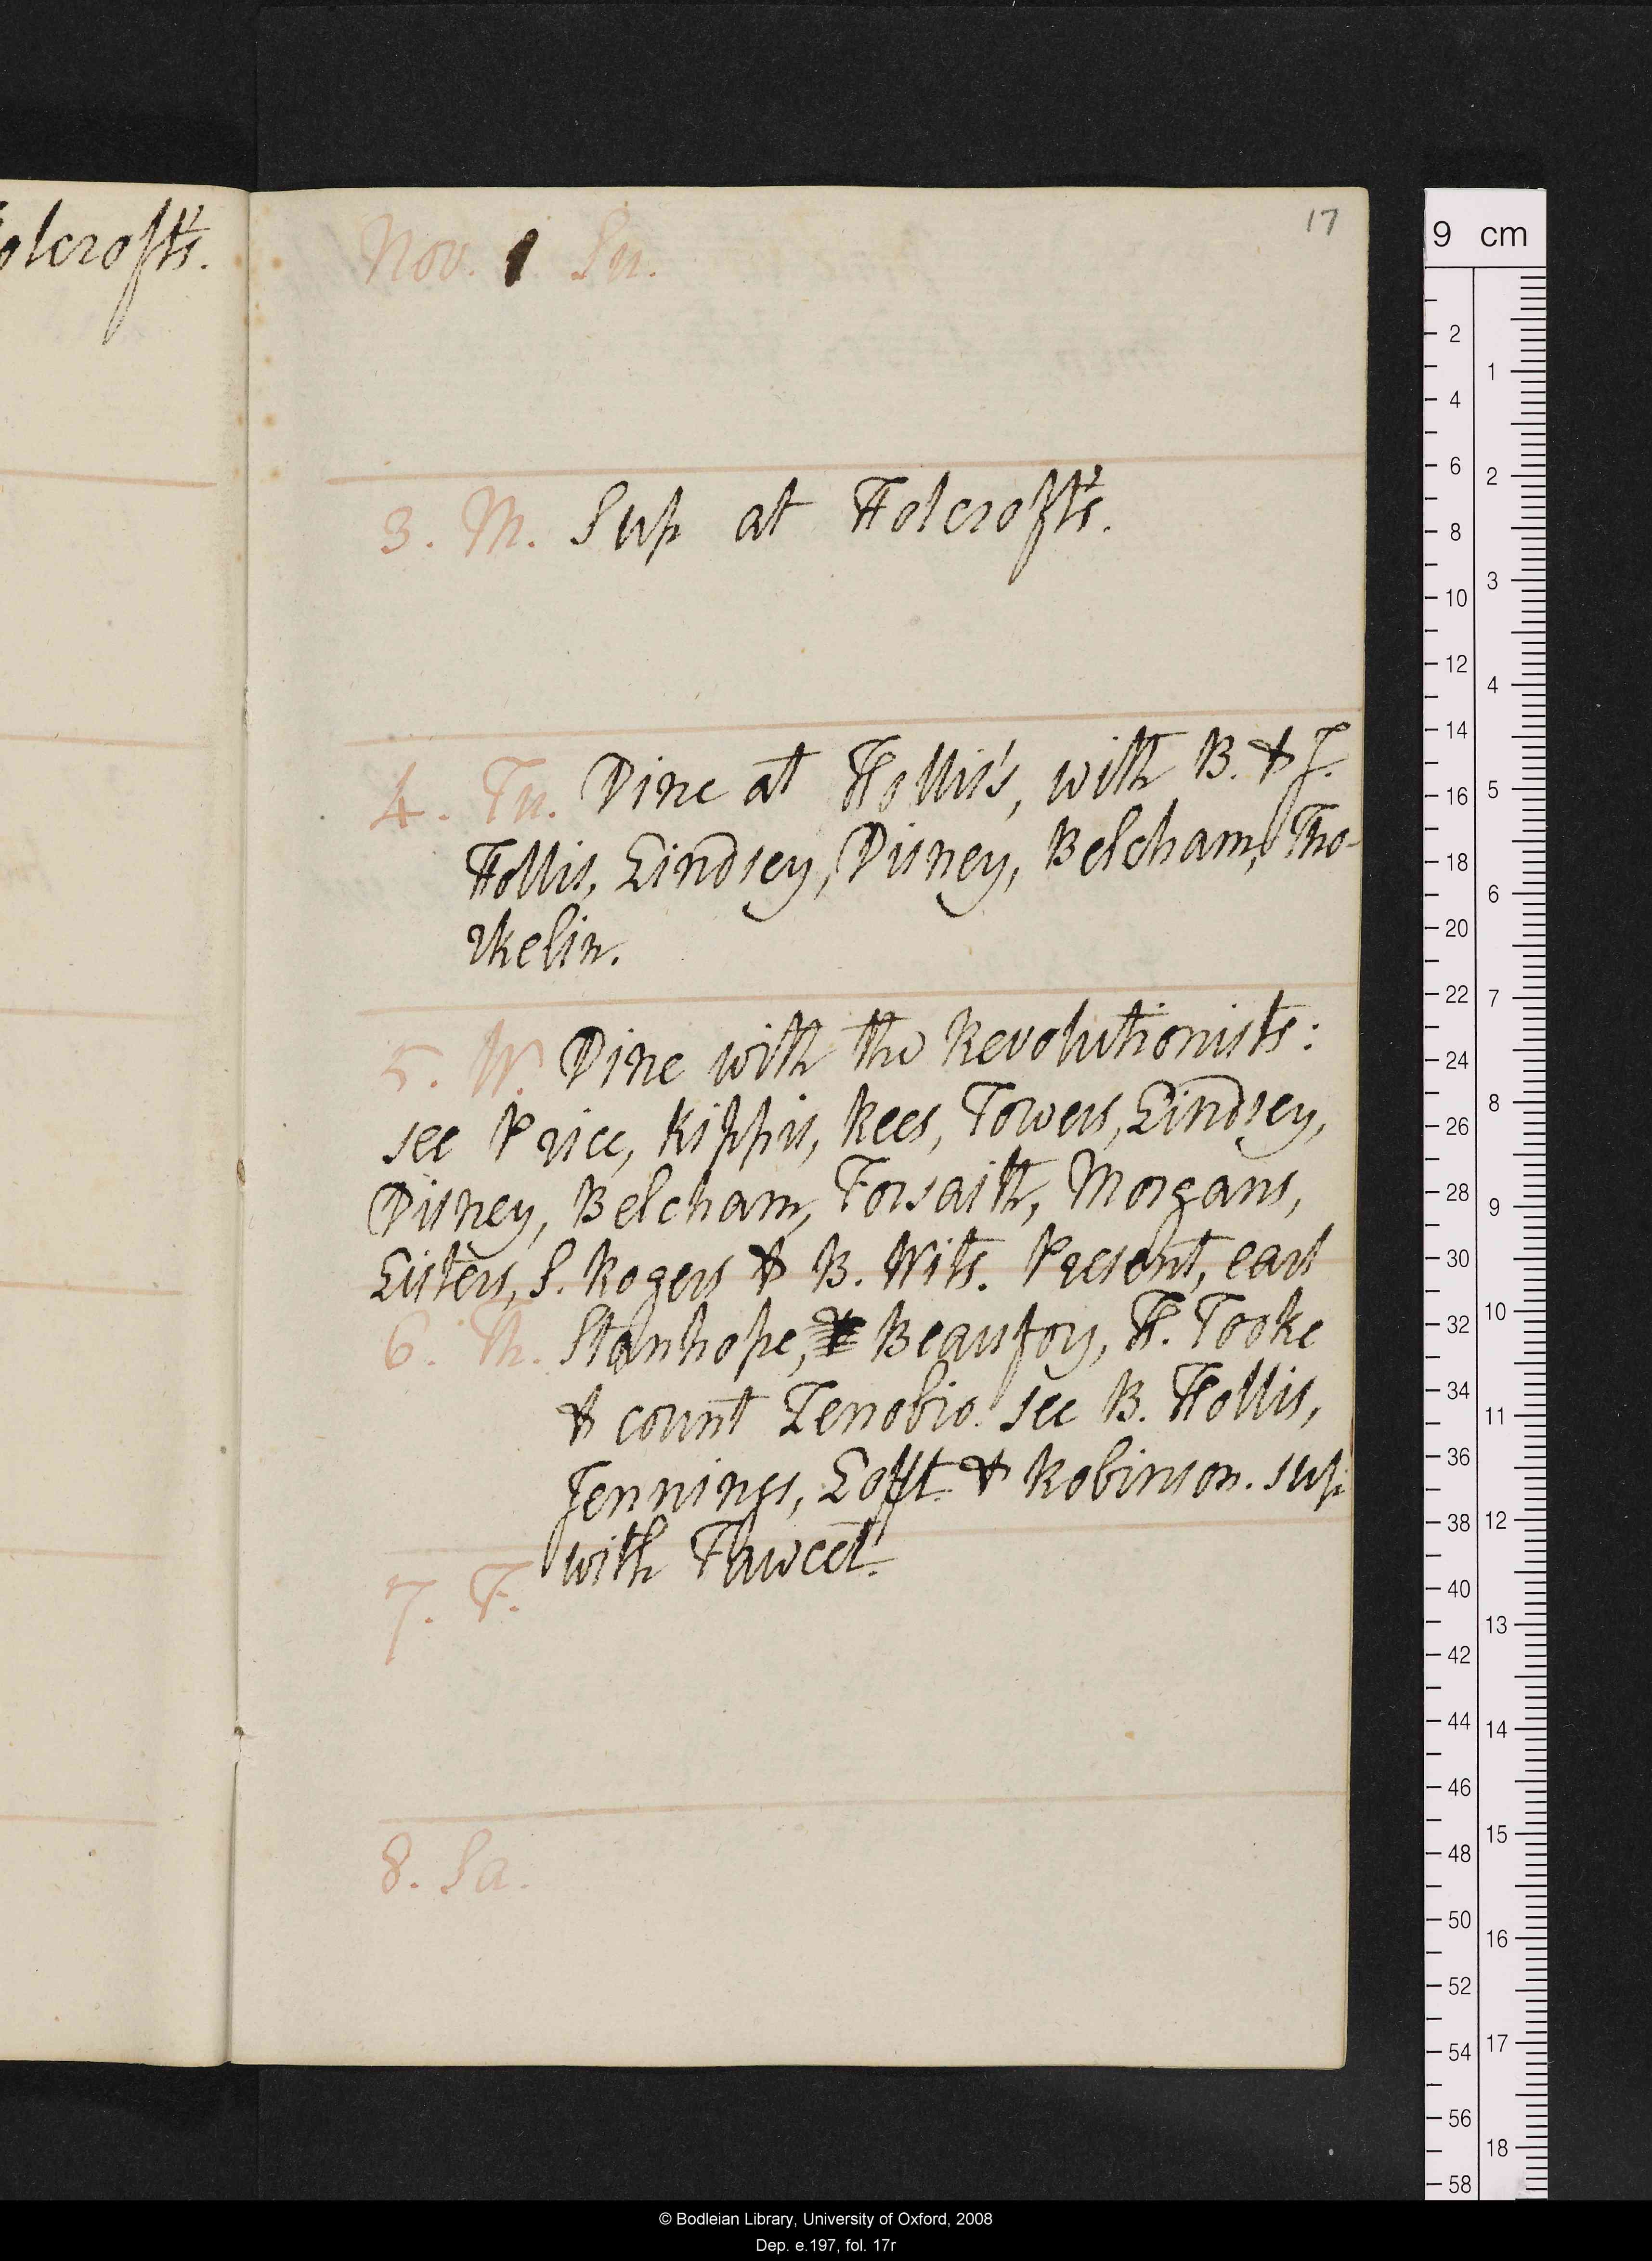 olcroft's.
17
Nov. 1 Su.
3. M. Sup at Holcroft's.
4. Tu. Dine at Hollis's, with B. & J.
Hollis, Lindsey, Disney, Belsham, Tho-
rkelin.
5. W. Dine with the Revolutionists:
see Price, Kippis, Rees, Towers, Lindsey,
Disney, Belsham, Forsaith, Morgans,
Listers, S. Rogers & B. Wits. Present, earl
6. Th. Stanhope, Beaufoy, H. Tooke
& count Zenobio. see B. Hollis,
Jennings, Lofft & Robinson. sup
with Fawcet.
7. F.
8. Sa.
9 cm
2
4
6
8
10
12
14
16
18
20
22
24
26
28
30
32
34
36
38
40
42
44
46
48
50
52
54
56
58
1
2
3
4
5
6
7
8
9
10
11
12
13
14
15
16
17
18
© Bodleian Library, University of Oxford, 2008
Dep. e.197, fol. 17r